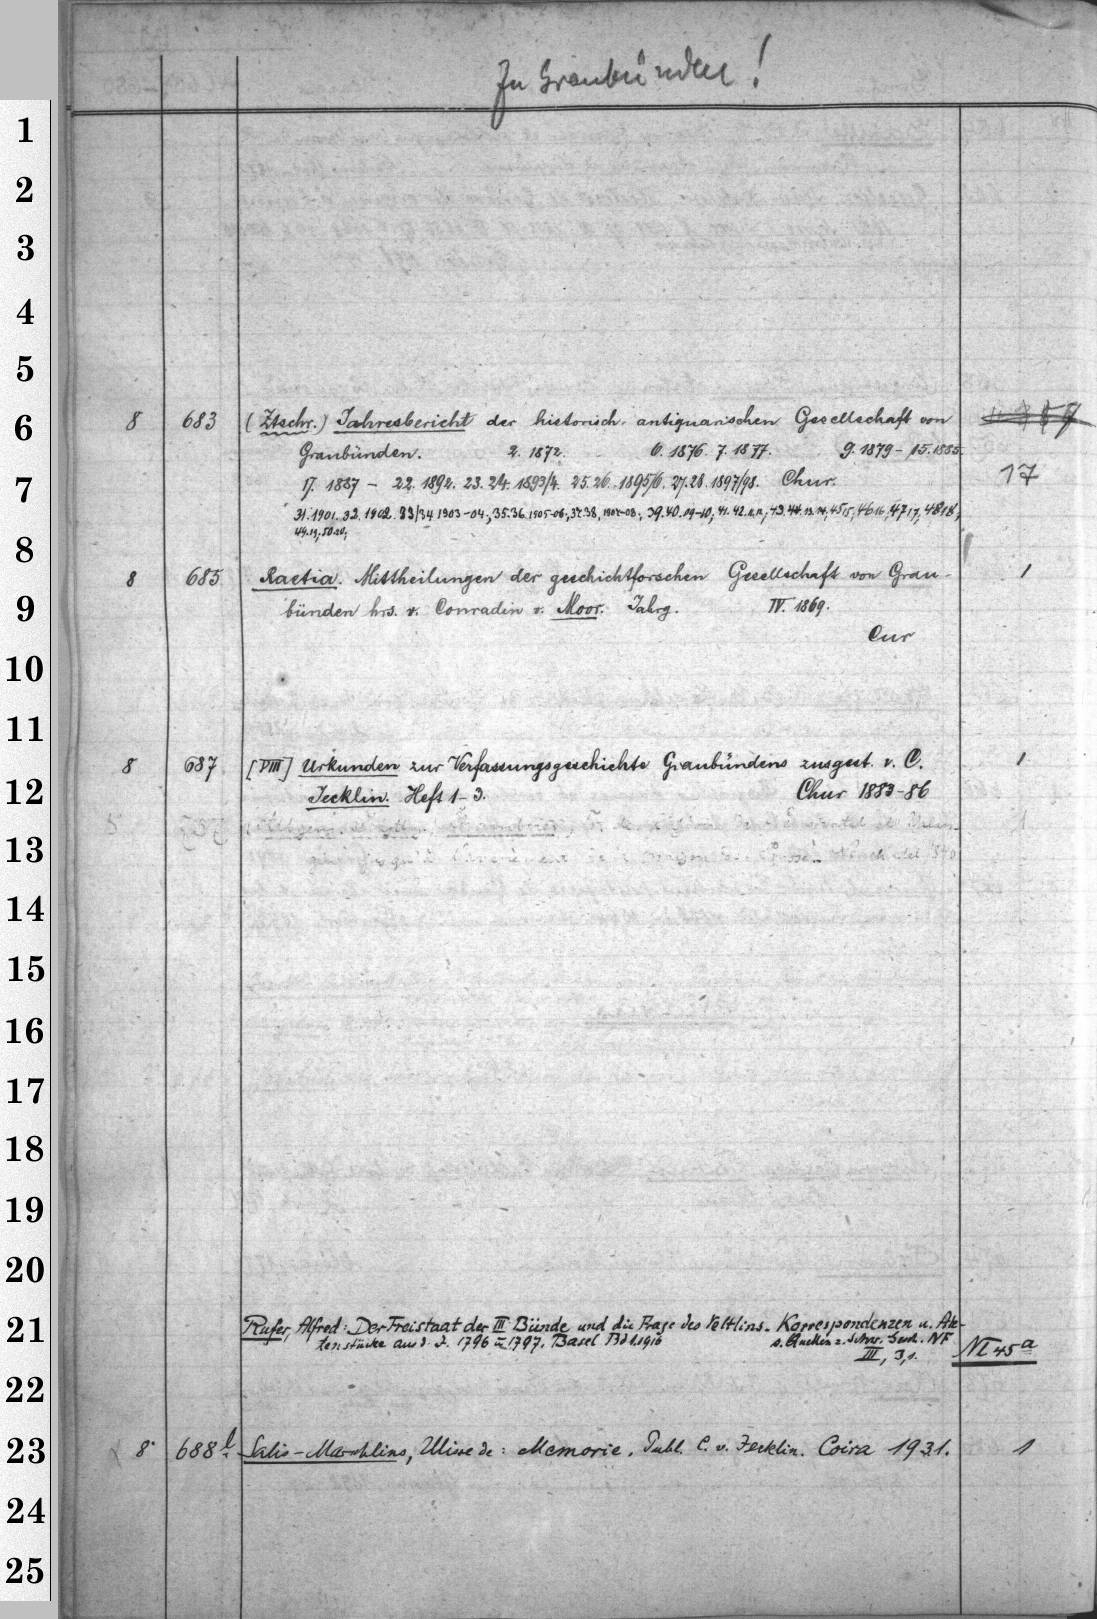 Zu Graubünden!
1
2
3
4
5
6
8 683 (Ztschr.) Jahresbericht der historisch. antiquarischen Gesellschaft von
Graubünden. 2. 1872. 6. 1876. 7. 1877. 9. 1879 - 15. 1885.
7
17. 1887 - 22. 1892. 23. 24. 1893/4. 25. 26. 1895/6. 27. 28. 1897/98. Chur. 17
31. 1901. 32. 1902. 33/34 1903-04; 35. 36. 1905-06; 37. 38, 1907-08; 39. 40. 09-10; 41. 42. 11. 12; 43. 44. 13. 14; 45 15; 46 16; 47 17; 48 18;
49. 19; 50 20;
8
8 685 Raetia. Mittheilungen der geschichtforschen Gesellschaft von Grau- 1
9
bünden hrs. v. Conradin v. Moor. Jahrg. IV. 1869.
Cur
10
11
8 687 [VIII] Urkunden zur Verfassungsgeschichte Graubündens zusgest. v. C. 1
12
Jecklin. Heft 1-3. Chur 1883-86
13
14
15
16
17
18
19
20
21
Rufer, Alfred: Der Freistaat der III Bünde und die Frage des Veltlins. Korrespondenzen u. Ak-
tenstücke aus d. J. 1796 u 1797. Basel Bd 1. 1916 s. Quellen z. Schw. Gesch. NF
III, 3,1. NL 45a
22
23
8° 688 l Salis-Marschlins, Ulisse de: Memorie. Publ. C. v. Jecklin. Coira 1931. 1
24
25